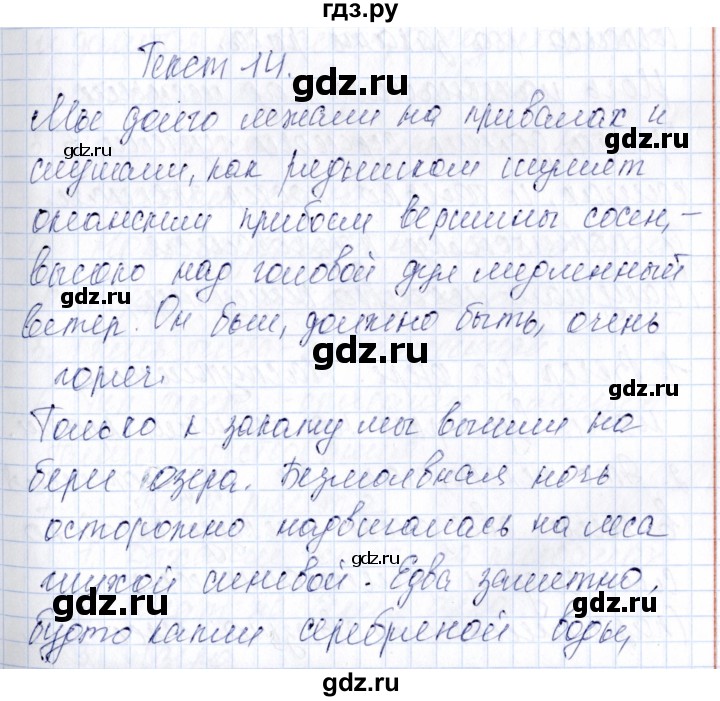 гдз.ру
Текст 14.
gdz.ru
Мы долго лежали на привалах и
gdz.ru
слушали, как глухим шумит
океанским прибоем вершины сосен, –
высоко над головой дул медленный
gdz.ru
ветер. Он был, должно быть, очень
gdz.ru
горяч.
gdz.ru
Только к закату мы вышли на
берег озера. Безмолвная ночь
осторожно надвигалась на леса
gdz.ru
глухой синевой. Едва заметно,
gdz.ru
gdz.ru
будто капли серебряной воды,
gdz.ru